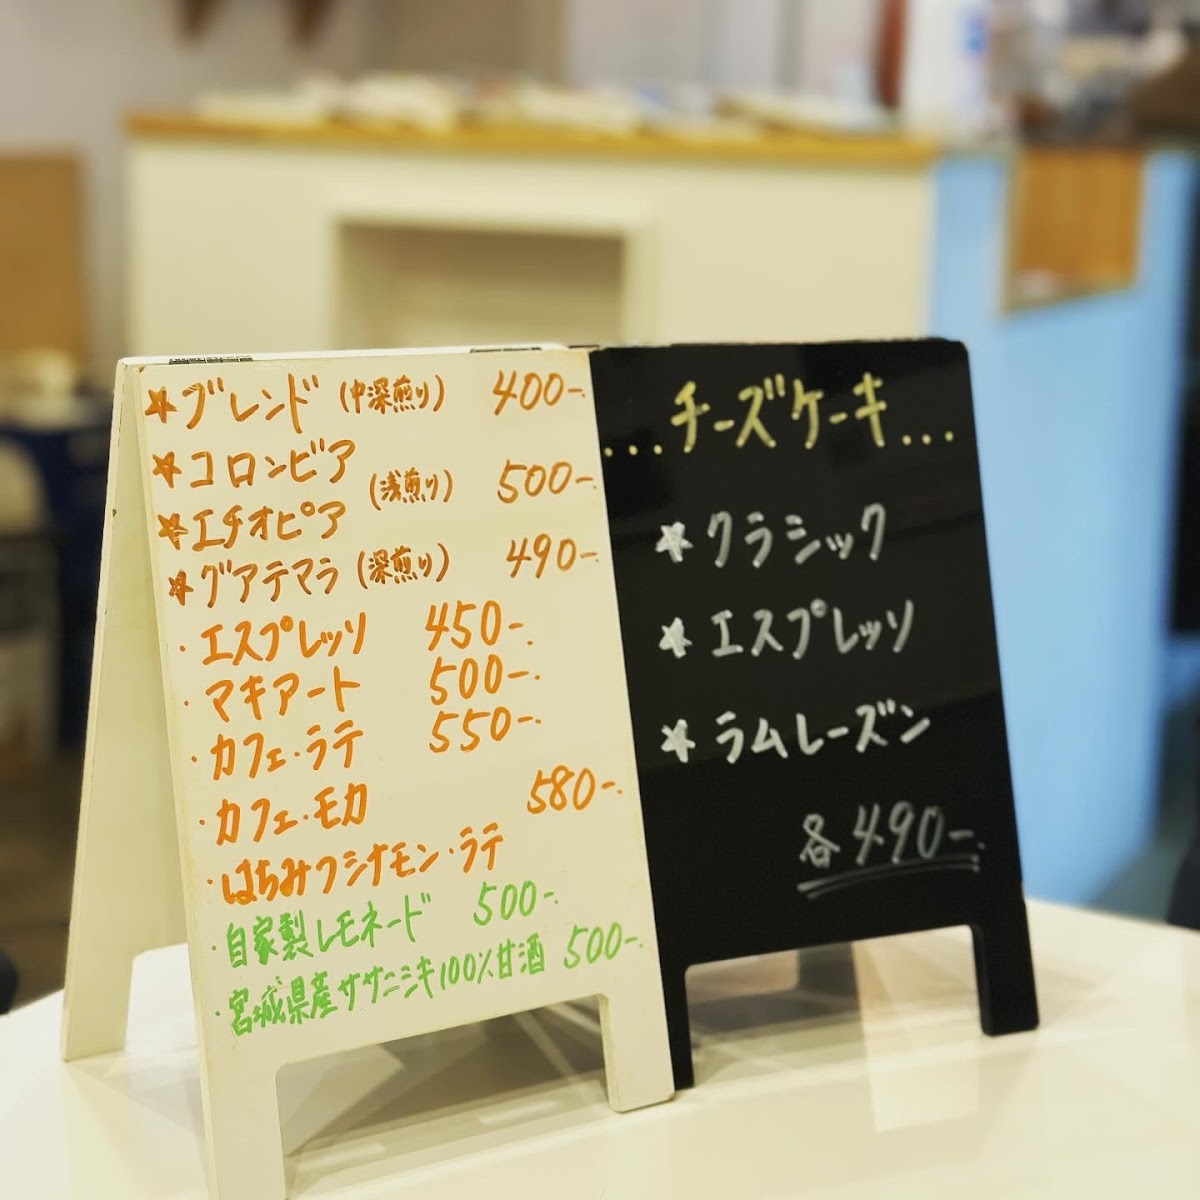 ★ブレンド (中深煎り) 400-.
★コロンビア
(浅煎り) 500-.
★エチオピア
★グアテマラ (深煎り) 490-.
・エスプレッソ 450-.
・マキアート 500-.
・カフェ・ラテ 550-.
・カフェ・モカ
580-.
・はちみつシナモン・ラテ
・自家製レモネード 500-.
・宮城県産ササニシキ100%甘酒 500-.
...チーズケーキ...
★クラシック
★エスプレッソ
★ラムレーズン
各490-.